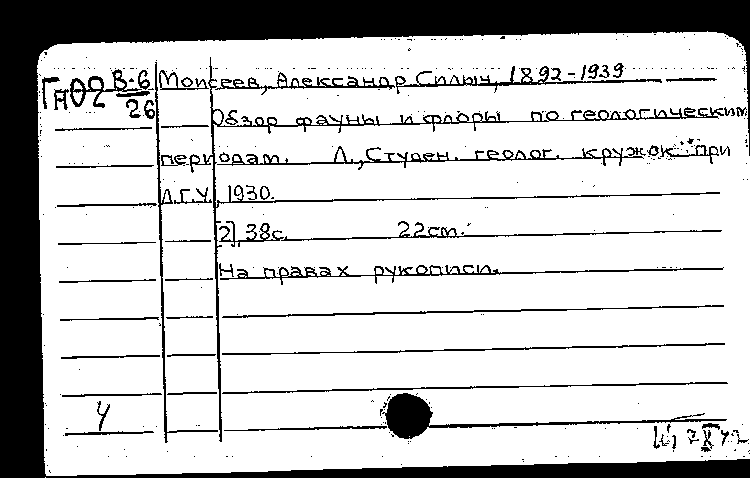 ГН02 В-6/26 Моисеев, Александр Силыч, 1892-1939
Обзор фауны и флоры по геологическим
периодам. Л., Студен. геолог. кружок при
Л.Г.У., 1930.
[2], 38с. 22cm.
На правах рукописи.